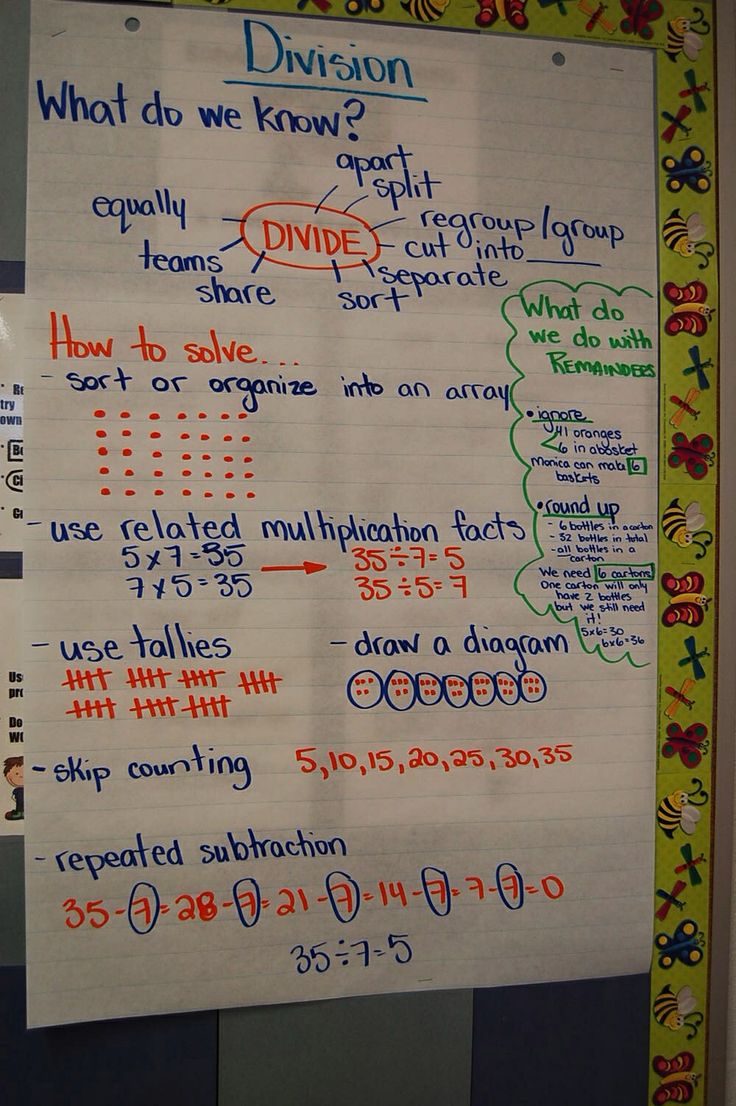 Division
What do we know?
apart
split
equally
regroup/group
DIVIDE
cut into____
teams
separate
share
sort
How to solve...
- sort or organize into an array
- use related multiplication facts
5x7=35
7x5=35
35÷7=5
35÷5=7
- use tallies
- draw a diagram
- skip counting
5,10,15,20,25,30,35
- repeated subtraction
35-7=28-7=21-7=14-7=7-7=0
35÷7=5
What do
we do with
REMAINDERS
• ignore
41 oranges
6 in a basket
Monica can make 6
baskets
• round up
- 6 bottles in a carton
- 32 bottles in total
- all bottles in a
carton
We need 6 cartons
One carton will only
have 2 bottles
but we still need
it!
5x6=30
6x6=36
Us
Do